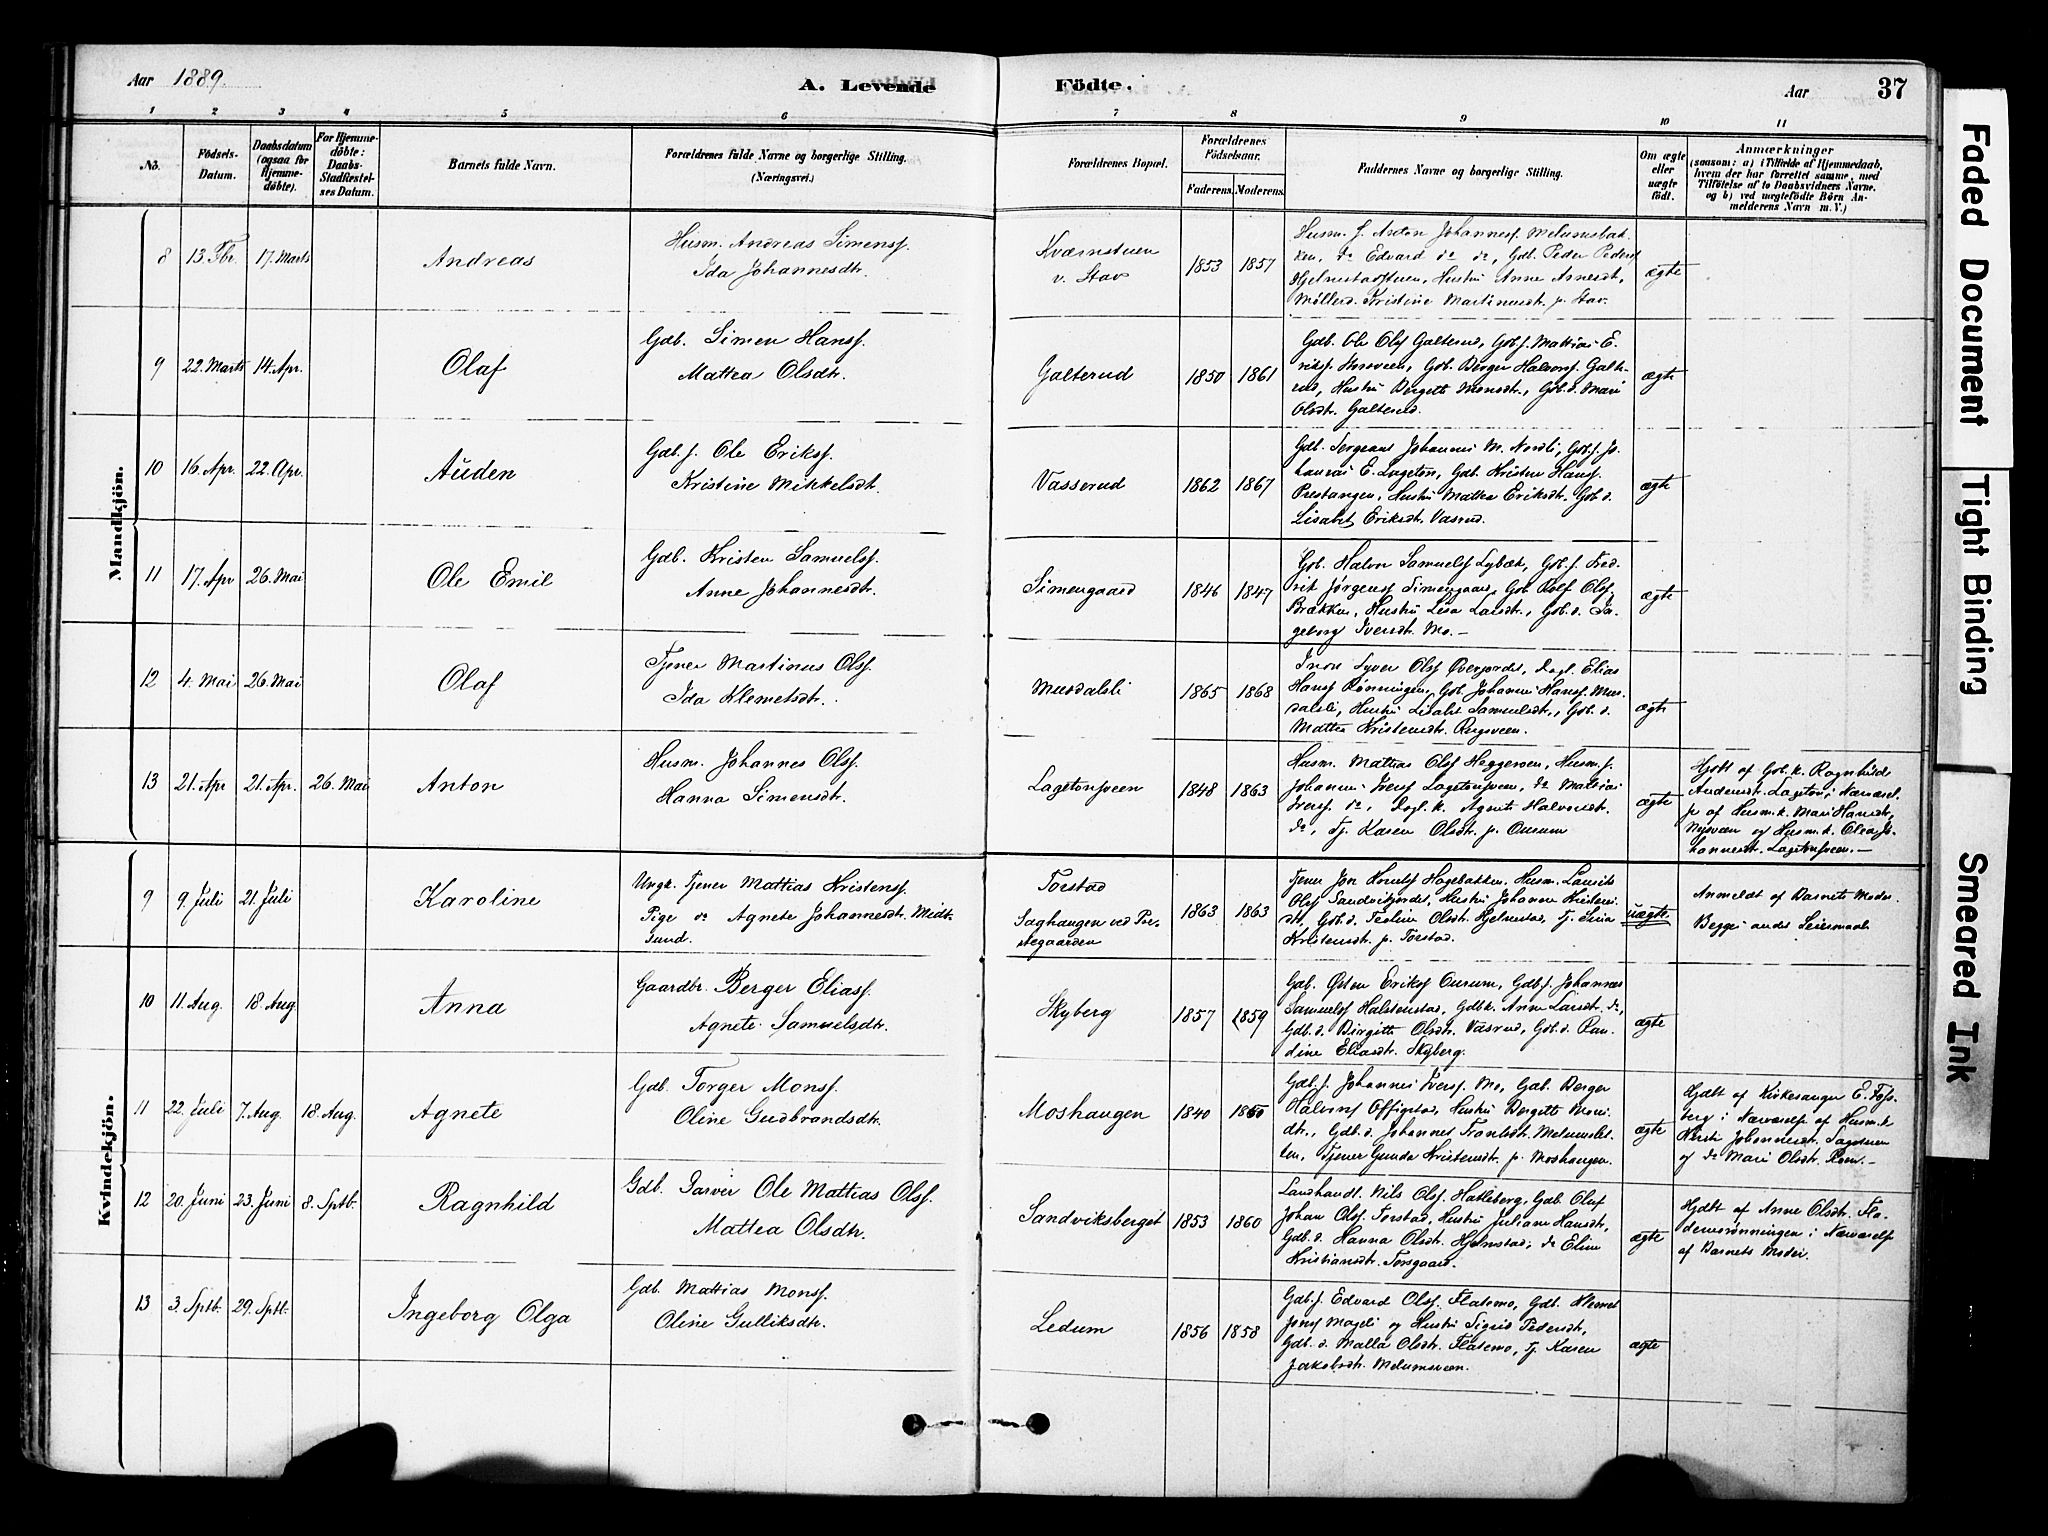 Aar 1889.
A. Levende Födte.
Aar
37
1 2 3 4 5 6 7 8 9 10 11
No.
Födsels-Datum.
Daabsdatum (ogsaa for Hjemmedöbte).
For Hjemmedöbte: Daabs-Stadfæstelses Datum.
Barnets fulde Navn.
Forældrenes fulde Navne og borgerlige Stilling. (Næringsvei.)
Forældrenes Bopæl.
Forældrenes Födselsaar.
Faderens. Moderens.
Faddernes Navne og borgerlige Stilling.
Om ægte eller uægte födt.
Anmærkninger
(saasom: a) i Tilfælde af Hjemmedaab, hvem der har forrettet samme, med Tilföielse af to Daabsvidners Navne. og b) ved uegtefödte Börn Anmelderens Navn m. V.)
Mandkjön.
8 13. Fbr. 17. Marts Andreas
Husm. Andreas Simensf.
Ida Johannesdtr.
Kværnstuen
v. Stav
1853 1857
Husm. f. Anton Johannesf. Melumsbakken, do Edvard do do, Gdb. Peder Pedersf
Hustru Anne Arnesdt,
Möllerd. Kristine Martinusdt. p. Stav.
ægte
9 22. Marts 14. Apr. Olaf
Gdb. Simen Hansf.
Mattea Olsdtr.
Galterud
1850 1861
Gdb. Ole Olsf Galterud, Gdb.f. Mattias E-
Gdb. Berger Halvorsf. Galte-
rud, Hustru Bergitte Monsdtr., Gdb.d. Mari
Olsdtr. Galterud.
ægte
10 16. Apr. 22. Apr. Auden
Gdb. f. Ole Eriksf.
Kristine Mikkelsdt.
Vasserud
1862 1867
Gdb. Sergeant Johannes M. Nordli, Gdb.f. Jo-
hannes E. Lageton, Gdb. Kristen Hansf.
Prestangen, Hustru Mattea Eriksdt. Gdb.d.
Lisabet Eriksdt. Vasrud.
ægte
11 17. Apr 26. Mai Ole Emil
Gdb. Kristen Samuelsf.
Anne Johannesdtr.
Simengaard
1846 1847
Gdb. Halvor Samuelsf Lybæk, Gdb.f. Fred-
rik Jørgensf Simengaard, Gdb Rolf Olsf.
Brækken, Hustru Lisa Larsdt., Gdb.d. In-
geborg Iversdt. Mo.-
ægte
12 4. Mai 26. Mai Olaf
Tjener Martinus Olsf.
Ida Klemetsdtr.
Musdalsli
1865 1868
Syver Olsf Øverjordet, Elias
Hansf Rønningen, Gdb. Johannes Hansf. Mus-
dalsli, Hustru Lisabet Samuelsdt., Gdb.d.
Mattea Kristensdt. Bergsveen.
ægte
13 21. Apr 21. Apr. 26. Mai Anton
Husm. Johannes Olsf.
Hanna Simensdt.
Lagetonsveen
1848 1863
Husm. Mattias Olsf Heggeroen, Husm. f.
Johannes Iversf Lagetonsveen, do Mattias
Iversf. do, Dagl. k. Agnete Halvorsdt.
do, Tj. Karen Olsdt. p. Onsum
ægte
Hjdbt af Gdb. k. Ragnhild
Andersdt. Lageton i Nærvæsel-
se af Husm. k. Mari Hansdt,
Nysveen og Husm. k. Olea Jo-
hannesdt. Lagetonsveen.-
Kvindekjön.
9 9. Juli 21. Juli Karoline
Ungk. Tjener Mattias Kristensf.
Pige do Agnete Johannesdt. Midt-
sund.
Torstad
Saghaugen ved Præ-
stegaarden
1863 1863
Tjener Jon Hagebakken, Husm. Laurits
Olsf Sandvikjordet, Hustru Johanne Kristens-
dt, Gdb.d. Olsdt. Hjelmstad, Tj. Lina
Kristensdt. p. Torstad.
uægte
Anmeldt af Barnets Moder.
Begges andet Leiermaal
10 11. Aug. 18. Aug. Anna
Gaardbr. Berger Eliasf.
Agnete Samuelsdtr.
Skyberg
1857 1859
Gdb. Østen Eriksf Onsum, Gdb.f. Johannes
Samuelsf Halstenstad, Gdbk. Anne Larsdt. do,
Gdb.d. Birgitte Olsdt. Vasrud, Gdb.d. Ran-
dine Eliasdt. Skyberg.
ægte
11 22. Juli 7. Aug. 18. Aug. Agnete
Gdb. Torger Monsf.
Oline Gudbrandsdtr.
Moshaugen
1840 1850
Gdb.f. Johannes Iversf. Mo, Gdb. Berger
Halvorsf Offigstad, Hustru Bergitte Mons-
dtr., Gdb.d. Johanne Frantsdt. Melumslet-
ten, Tjener Gunda Kristensdt. p. Moshaugen.
ægte
Hjdbt af Kirkesanger E. Fos-
berg i Nærværelse af Husm.k
Kirsti Johannesdt. Sagstuen
og do Mari Olsdt. Roen.-
12 20. Juni 23. Juni 8. Sptb. Ragnhild
Gdb. Garver Ole Mattias Olsf.
Mattea Olsdtr.
Sandviksberget
1853 1860
Landhandl. Nils Olsf. Hatleberg, Gdb. Oluf
Johan Olsf. Torstad, Hustru Juliane Hansdt,
Gdb.d. Hanna Olsdt. Hjelmstad, do Eline
Kristiansdt. Torsgaard.
ægte
Hjdbt af Anne Olsdt. Fla-
demorønningen i Nærværelse
af Barnets Moder.
13 3. Sptb. 29. Sptb. Ingeborg Olga
Gdb. Mattias Monsf.
Oline Gulliksdtr.
Ledum
1856 1858
Gdb.f. Edvard Olsf. Flatemo, Gdb. Klemet
og Hustru Sigrid Pedersdt,
Gdb.d. Malla Olsdt. Flatemo, Tj. Karen
Jakobsdt. Melumsveen.
ægte
Faded Document
Tight Binding
Smeared Ink